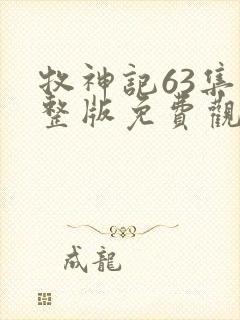 牧神記63集
整版免費觀
成龍